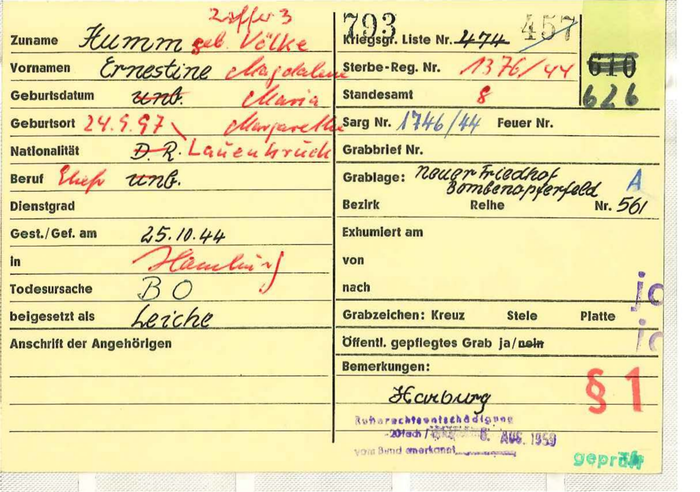 Ziffer 3
Zuname Humm geb. Völke
Vornamen Ernestine Magdalene
Geburtsdatum unb. Maria
Geburtsort 24.9.97 Margarethe
Nationalität D. R. Lauenbruch
Beruf Ehefr unb.
Dienstgrad
Gest./Gef. am 25.10.44
in Hamburg
Todesursache B O
beigesetzt als Leiche
Anschrift der Angehörigen
793 457
Kriegsgr. Liste Nr. 474
610
Sterbe-Reg. Nr. 1376/44
626
Standesamt 8
Sarg Nr. 1746/44 Feuer Nr.
Grabbrief Nr.
Grablage: Neuer Friedhof A
Bombenopferfeld
Bezirk Reihe Nr. 561
Exhumiert am
von
nach
Grabzeichen: Kreuz Stele Platte
Öffentl. gepflegtes Grab ja/nein
Bemerkungen:
§ 1
Harburg
Ruherechtsentschädigung
-20fach/ 6. AUG. 1959
vom Bund anerkannt
geprüft